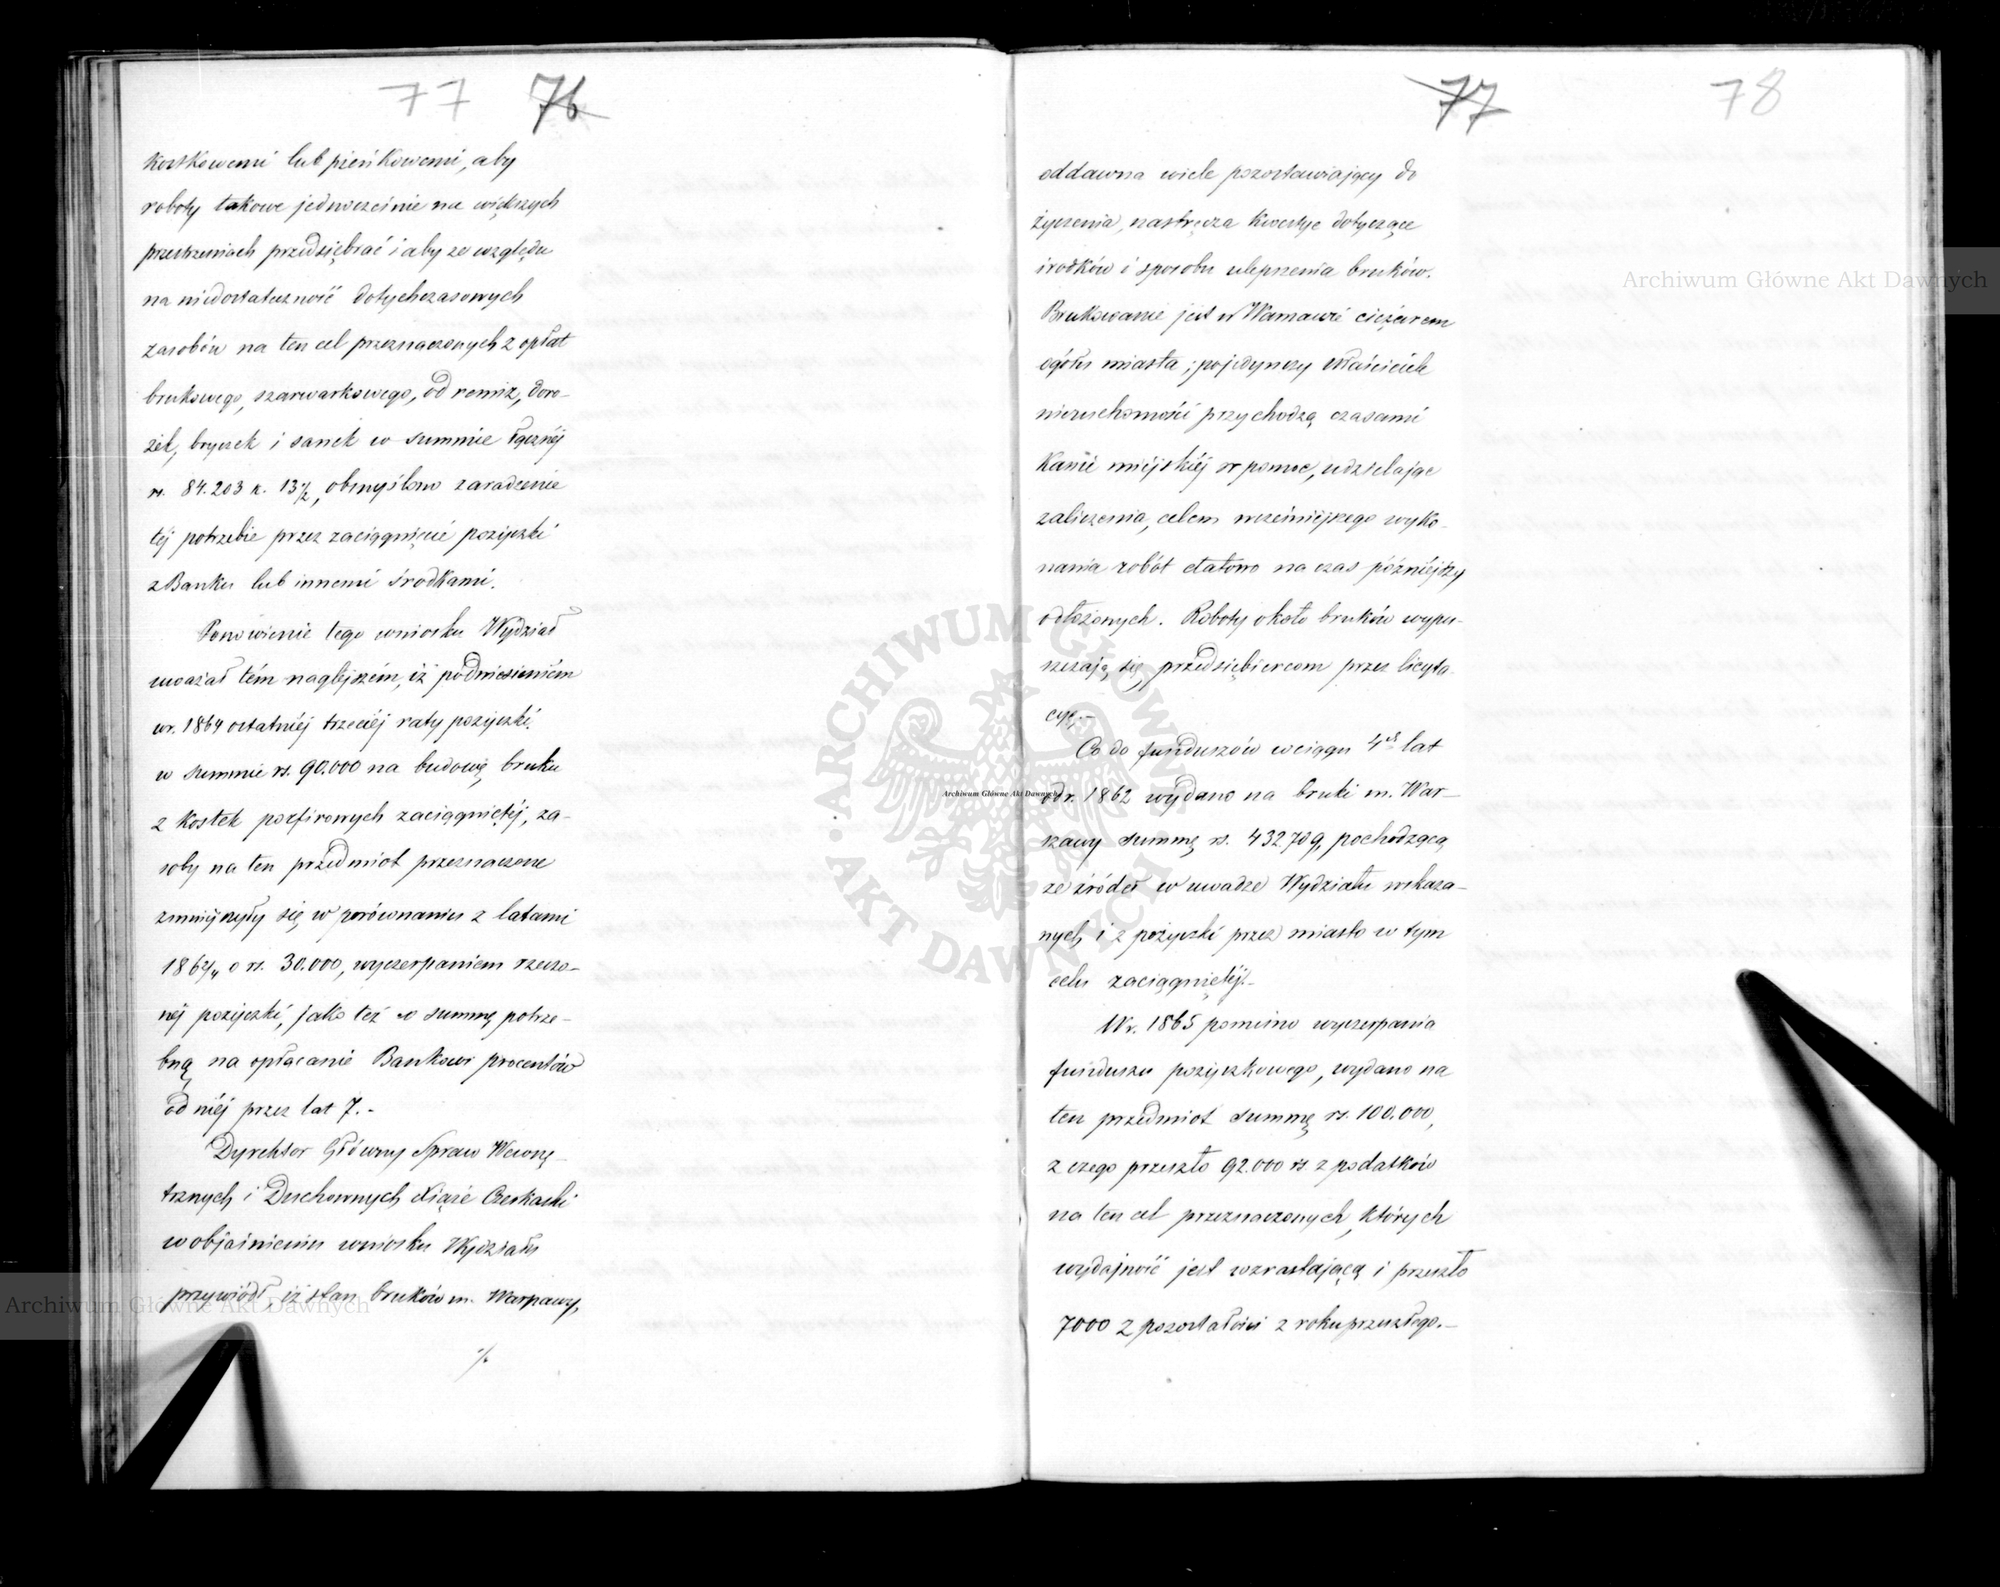 77 76
kostkowemi lub pieńkowemi, aby
roboty takowe jednocześnie na większych
przestrzeniach przedsiębrać i aby ze względu
na niedostateczność dotychczasowych
zasobów na ten cel przeznaczonych z opłat
brukowego, szarwarkowego, od remiz, doro-
żek, bryczek i sanek w summie łącznéj
rs. 84.203 k. 13½, obmyślono zaradzenie
téj potrzebie przez zaciągnięcie pożyczki
z Banku lub innemi środkami.
Ponowienie tego wniosku Wydział
uważał tém naglejszém, iż podniesieniem
w r. 1864 ostatniéj trzeciéj raty pożyczki
w summie rs. 90.000 na budowę bruku
z kostek porfirowych zaciągniętéj, za-
soby na ten przedmiot przeznaczone
zmniejszyły się w porównaniu z latami
1862/4 o rs. 30.000, wyczerpaniem rzeczo-
néj pożyczki, jako też o summę potrze-
bną na opłacanie Bankowi procentów
od niéj przez lat 7.-
Dyrektor Główny Spraw Wewnę-
trznych i Duchownych Xiąże Czerkaski
w objaśnieniu wniosku Wydziału
przywiódł iż stan bruków m. Warszawy,
%
77 78
oddawna wiele pozostawiający do
życzenia, nastręcza kwestye dotyczące
środków i sposobu ulepszenia bruków.
Brukowanie jest w Warszawie ciężarem
ogółu miasta; pojedynczy właściciele
nieruchomości przychodzą czasami
kassie miejskiéj w pomoc, udzielając
zaliczenia, celem wcześniejszego wyko-
nania robót etatowo na czas późniéjszy
odłożonych. Roboty około bruków wypu-
szczają się przedsiębiercom przez licyta-
cyę.-
Co do funduszów w ciągu 4ch lat
od r. 1862 wydano na bruki m. War-
szawy summę rs. 432709, pochodzącą
ze źródeł w uwadze Wydziału wskaza-
nych i z pożyczki przez miasto w tym
celu zaciągniętéj.-
W r. 1865 pomimo wyczerpania
funduszu pożyczkowego, wydano na
ten przedmiot summę rs. 100.000,
z czego przeszło 92.000 rs. z podatków
na ten cel przeznaczonych, których
wydajność jest wzrastającą i przeszło
7000 z pozostałości z roku przeszłego.-
Archiwum Główne Akt Dawnych
Archiwum Główne Akt Dawnych
Archiwum Główne Akt Dawnych
ARCHIWUM GŁÓWNE
AKT DAWNYCH